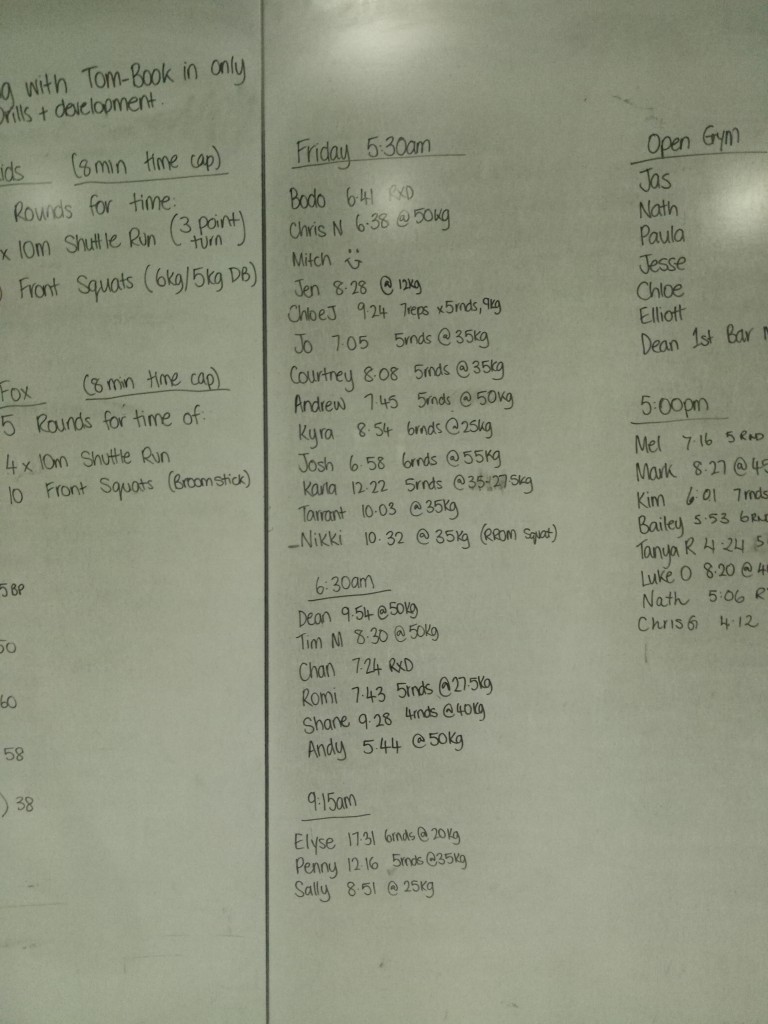 with Tom-Book in only
Drills + development.
(8 min time cap)
Rounds for time:
x 10m Shuttle Run (3 point turn)
Front Squats (6kg/5kg DB)
Fox (8 min time cap)
5 Rounds for time of:
4 x 10m Shuttle Run
10 Front Squats (Broomstick)
5 BP
50
60
58
) 38
Friday 5:30am
Bodo 6.41 RXD
Chris N 6.38 @ 50kg
Mitch
Jen 8.28 @ 12kg
Chloe J 9.24 7reps x 5rnds, 9kg
Jo 7.05 5rnds @ 35kg
Courtney 8.08 5rnds @ 35kg
Andrew 7.45 5rnds @ 50kg
Kyra 8.54 6rnds @ 25kg
Josh 6.58 6rnds @ 55kg
Kana 12.22 5rnds @ 35-27.5kg
Tarrant 10.03 @ 35kg
Nikki 10.32 @ 35kg (RROM Squat)
6:30am
Dean 9.54 @ 50kg
Tim M 8.30 @ 50kg
Chan 7.24 RXD
Romi 7.43 5rnds @ 27.5kg
Shane 9.28 4rnds @ 40kg
Andy 5.44 @ 50kg
9:15am
Elyse 17.31 6rnds @ 20kg
Penny 12.16 5rnds @ 35kg
Sally 8.51 @ 25kg
Open Gym
Jas
Nath
Paula
Jesse
Chloe
Elliott
Dean 1st Bar M
5:00pm
Mel 7.16 5 RND
Mark 8.27 @ 45
Kim 6.01 7rnds
Bailey 5.53 6RN
Tanya R 4.24 5
Luke O 8.20 @ 4
Nath 5:06 R
Chris G 4.12